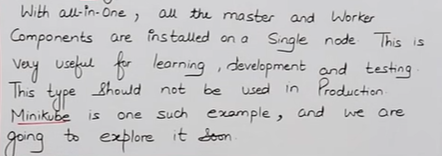 With all-in-One, all the master and Worker
Components are installed on a Single node. This is
Very useful for learning, development and testing.
This type Should not be used in Production.
Minikube is one such example, and we are
going to explore it Soon.